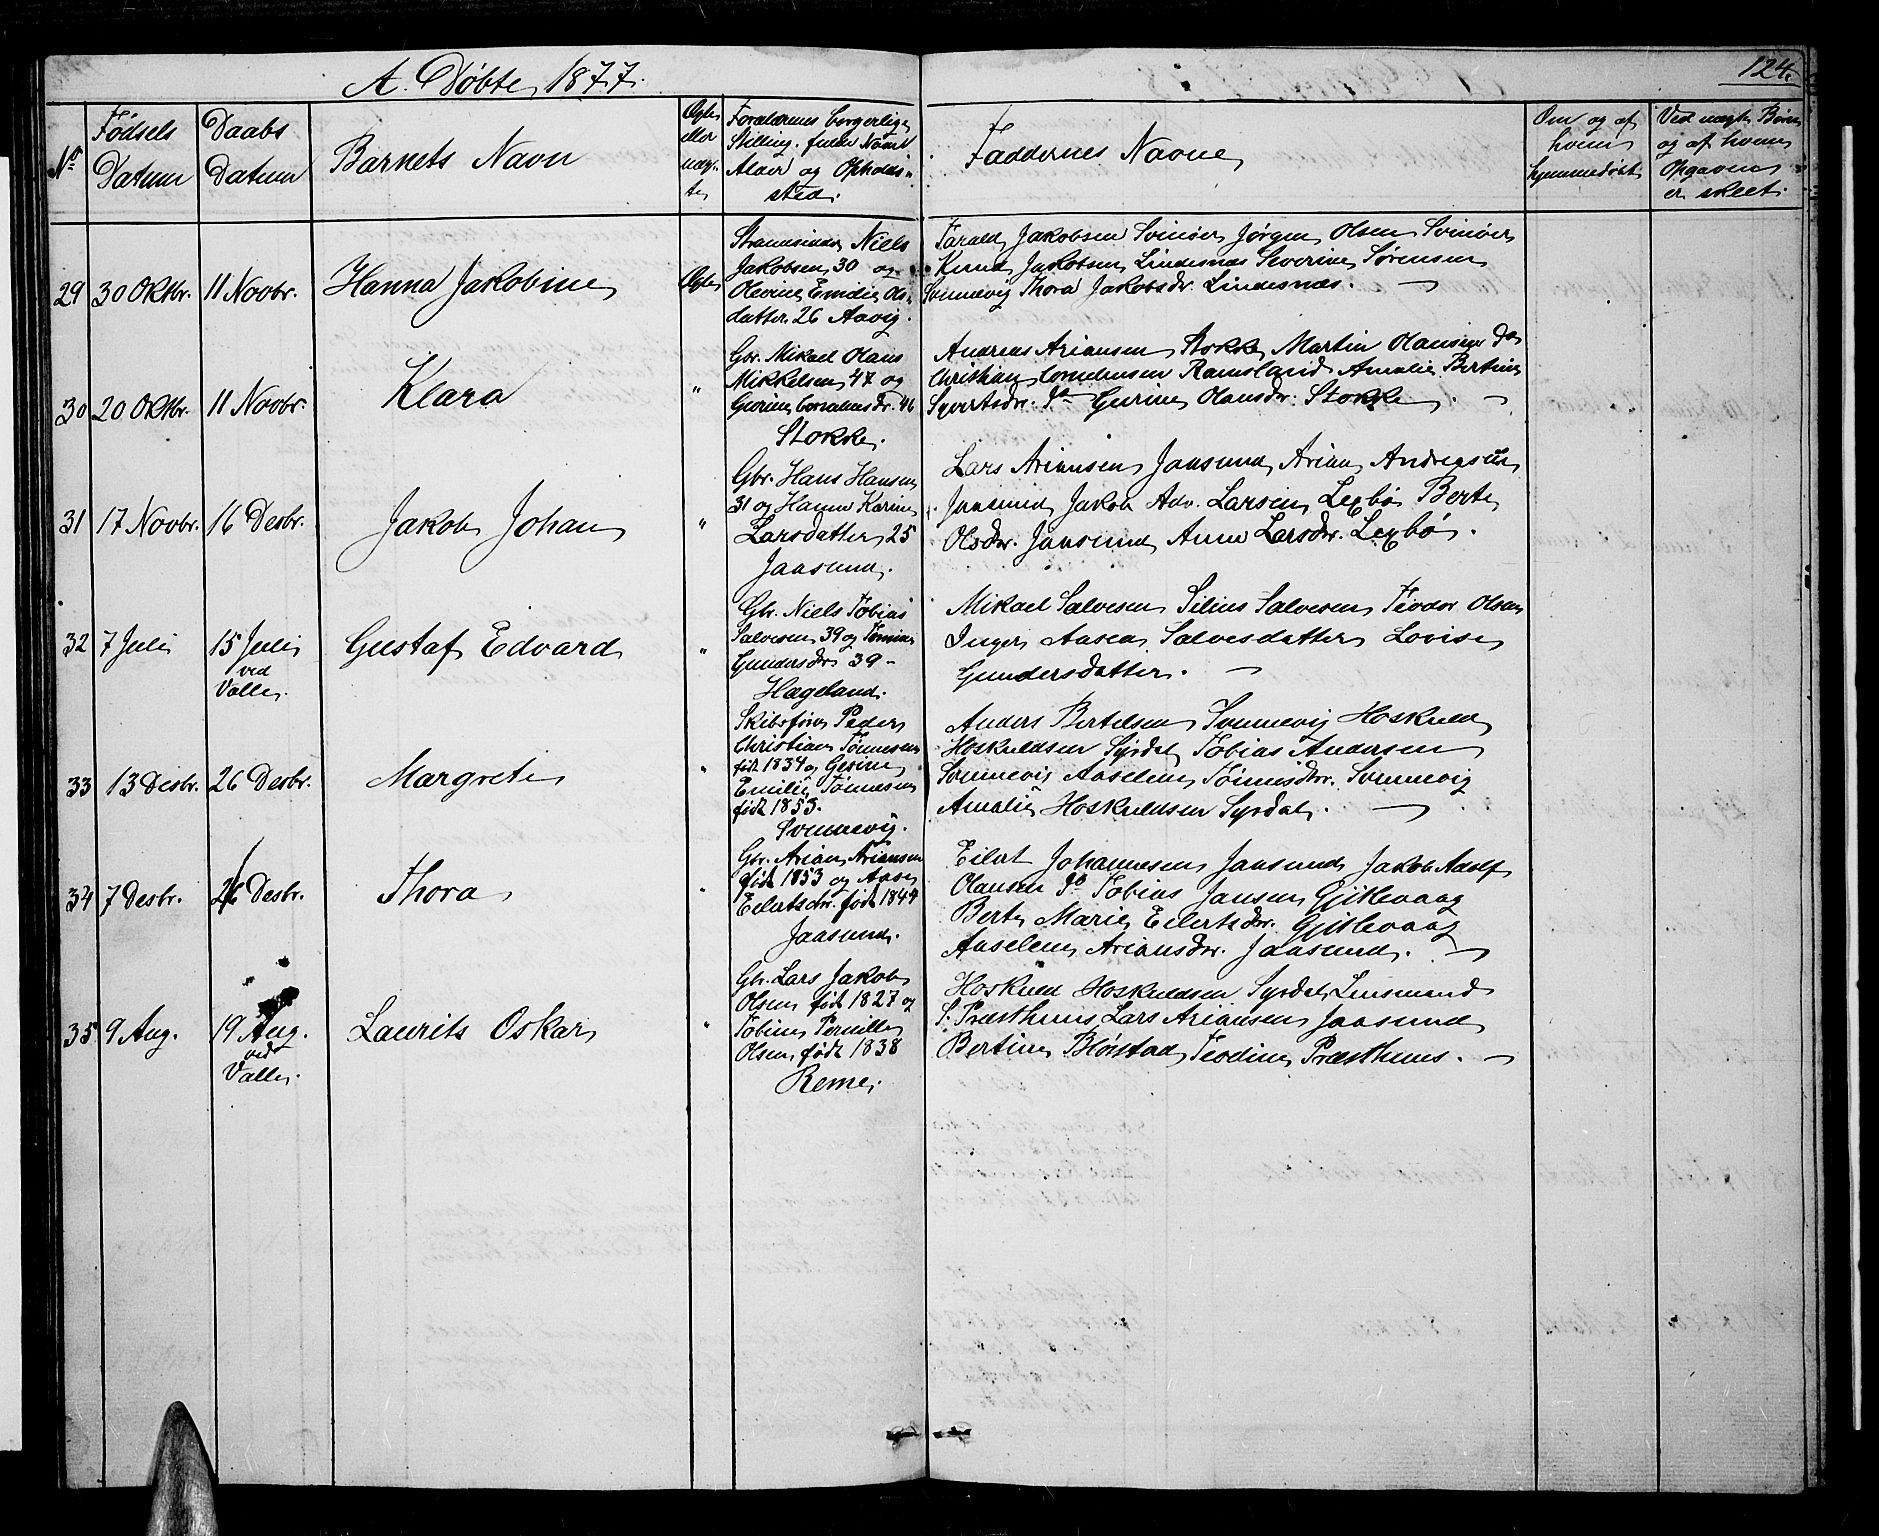 A. Døbte 1877.
124.
No
Fødsels Datum
Daabs Datum
Barnets Navn
Ægte eller uægte
Forældrenes borgerlige Stilling, fulde Navne Alder og Opholdssted.
Faddernes Navne
Om og af hvem hjemmedøbt
Ved uægte Børn og af hvem Opgaven er skeet.
29 30 Oktbr. 11 Novbr. Hanna Jakobine Ægte
Strandsidder Niels
Jakobsen 30 og
Olevine Emilie Ols-
datter 26 Aavig.
Tarald Jakobsen Svinøer Jørgen Olsen Svinøer
Knud Jakobsen Lindesnæs Severine Sørensen
Svennevig Thora Jakobsdr. Lindesnæs.
30 20 Oktbr. 11 Novbr. Klara "
Gbr. Mikael Olaus
Mikkelsen 47 og
Gurine 46
Stokke.
Andreas Ariansen Stokke Martin Olausen Do
Christian Corneliusen Ramsland Amalie Bertine
Syvertsdr. Do Gurine Olausdr. Stokke.
31 17 Novbr. 16 Desbr. Jakob Johan "
Gbr. Hans Hansen
31 og Hanne Karine
Larsdatter 25
Jaasund.
Lars Ariansen Jaasund Arian Andreassen
Jaasund Jakob Adv. Larsen Lexbø Berte
Olsdr. Jaasund Anne Larsdr. Lexbø.
32 7 Juli 15 Juli ved Valle. Gustaf Edvard "
Gbr. Niels Tobias
Salvesen 39 og Tomine
Gundersdr 39 -
Hægeland.
Mikael Salvesen Silius Salvesen Teodor Olsen
Inger Aasea Salvesdatter Lovise
Gundersdatter.
33 13 Desbr. 26 Desbr. Margrete "
Skibsfører Peder
Christian Tønnesen
født 1834 og Gesine
Emilie Tønnesen
født 1853.
Svennevig.
Anders Bertelsen Svennevig Hoskuld
Hoskuldsen Syrdal Tobias Andersen
Svennevig Aaselene Tønnesdr. Svennevig
Amalie Hoskuldsen Syrdal.
34 7 Desbr. 26 Desbr. Thora "
Gbr. Arian Ariansen
født 1853 og Aase
Eilertsdr. født 1844
Jaasund.
Eilert Johannesen Jaasund Jakob Adolf
Olausen Do Tobias Jansen Gjitlevaag
Berte Marie Eilertsdr. Gjitlevaag
Aaselene Ariansdr. Jaasund.
35 9 Aug. 19 Aug. ved Valle. Laurits Oskar "
Gbr. Lars Jakob
Olsen født 1827 og
Tobine Pernille
Olsen født 1838
Reme.
Hoskuld Hoskuldsen Syrdal Lensmand
S. Præsthuus Lars Ariansen Jaasund
Bertine Bløistad Teodine Præsthuus.